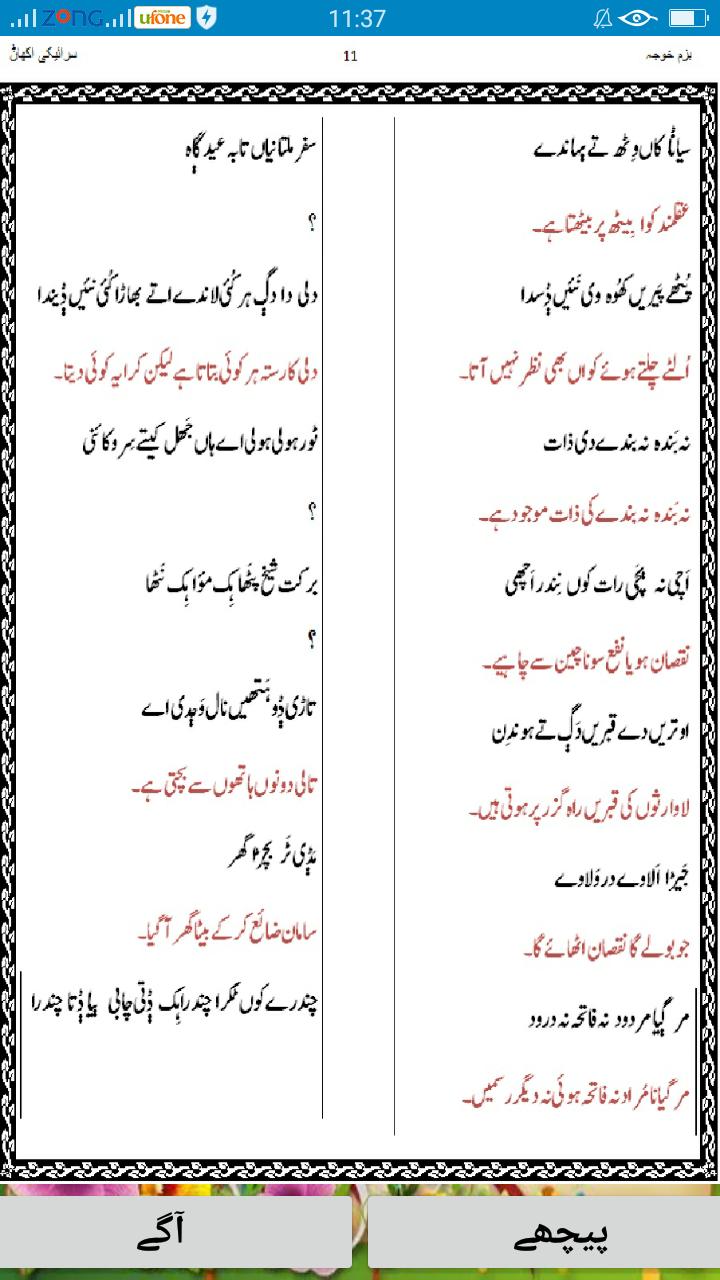 ZONG ufone 11:37
بزم خوجہ 11 سرائیکی اکھاݨ
سیاݨاں کاں وِٹھ تے بہاندے
عقلمند کوا بیٹھ پر بیٹھتا ہے۔
پُٹھے پَیریں کھُوہ وی نَئیں ݙِسدا
اُلٹے چلتے ہوئے کواں بھی نظر نہیں آتا۔
نہ بَندہ نہ بندے دی ذات
نہ بَندہ نہ بندے کی ذات موجود ہے۔
اَچی نہ پچی رات کوں نِندر اَچھی
نقصان ہو یا نفع سونا چین سے چاہیے۔
اوتریں دے قبریں دَڳ تے ہوندِن
لاوارثوں کی قبریں راہ گزر پر ہوتی ہیں۔
جَیڑا اَلاوے در وَلاوے
جو بولے گا نقصان اٹھائے گا۔
مر ڳیا مردود نہ فاتحہ نہ درود
مر گیا نامُراد نہ فاتحہ ہوئی نہ دیگر رسمیں۔
سفر ملتانیاں تابہ عید ڳاہ
؟
دلی دا دڳ ہر کُئی لاندے اتے بھاڑا کُئی نئیں ݙیندا
دلی کا رستہ ہر کوئی بتاتا ہے لیکن کرایہ کوئی دیتا۔
ٹور ہولی ہولی اے ہاں جَھل کیتے سِر وکائئی
؟
برکت شیخ پٹھا ہِک مؤا ہِک نَٹھا
؟
تاڑی ݙو ہَتھیں نال وَڄدی اے
تالی دونوں ہاتھوں سے بجتی ہے۔
مݙی ٹَر بچڑا گھر
سامان ضائع کر کے بیٹا گھر آ گیا۔
چندرے کوں ٹکرا چندرا ہِک ݙتی چابی بیا ݙتا چندرا
آگے پیچھے